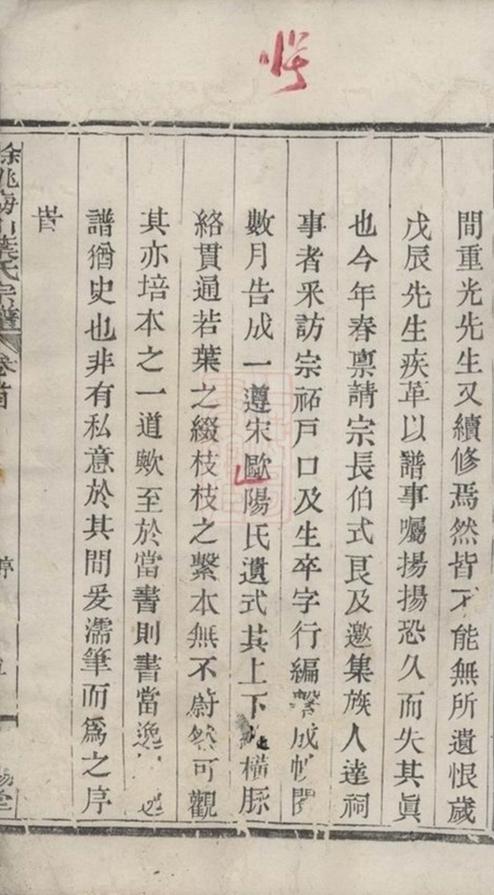 間重光先生又續修焉然皆不能無所遺恨歲
戊辰先生疾革以譜事囑揚揚恐久而失其眞
也今年春禀請宗長伯式良及邀集族人達祠
事者采訪宗祏戸口及生卒字行編 成 閱
數月告成一遵宋歐陽氏遺式其上下 橫脈
絡貫通若葉之綴枝枝之繫本無不蔚然可觀
其亦培本之一道歟至於當書則書當逸 逸
譜猶史也非有私意於其間爰濡筆而爲之序
旹
餘姚 山葉氏宗譜 卷首 序